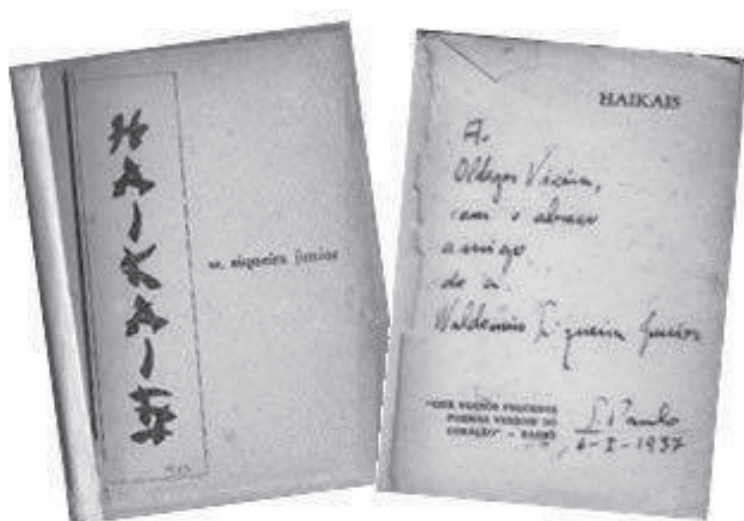 HAIKAIS
w. siqueira junior
HAIKAIS
A.
Oldegar Vieira,
com o abraço
amigo
do a.
Waldomiro Siqueira Junior
POEMAS VERSOS DO
CORAÇÃO" - BASHÔ
S. Paulo
6-I-1937